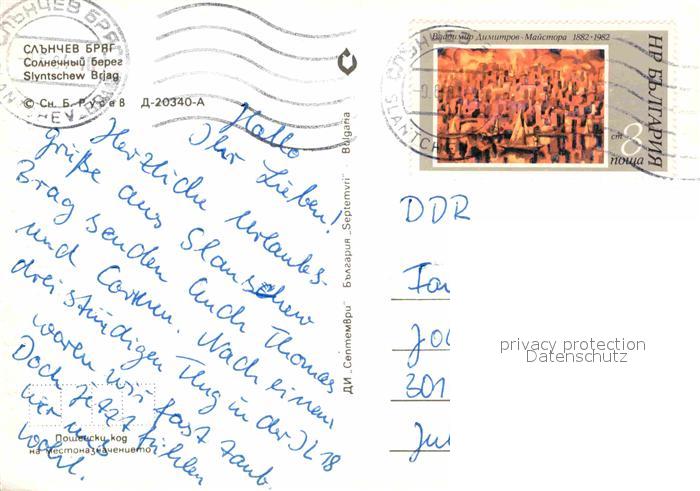 СЛЪНЧЕВ БРЯГ
Солнечный берег
Slyntschew Brjag
© Сн. Б. Русев Д-20340-А
Hallo
Ihr Lieben!
Herzliche Urlaubs-
grüße aus Slantschew
Brag senden Euch Thomas
und Carmen. Nach einem
dreistündigen Flug in der IL 18
waren wir fast taub.
Doch jetzt fühlen
wir uns
wohl.
Пощенски код
на местоназначението
ДИ „Септември" България „Septemvri" Bulgaria
Владимир Димитров-Майстора 1882·1982
НР БЪЛГАРИЯ
ст 8
поща
DDR
Fa
Jo
301
Ju
privacy protection
Datenschutz